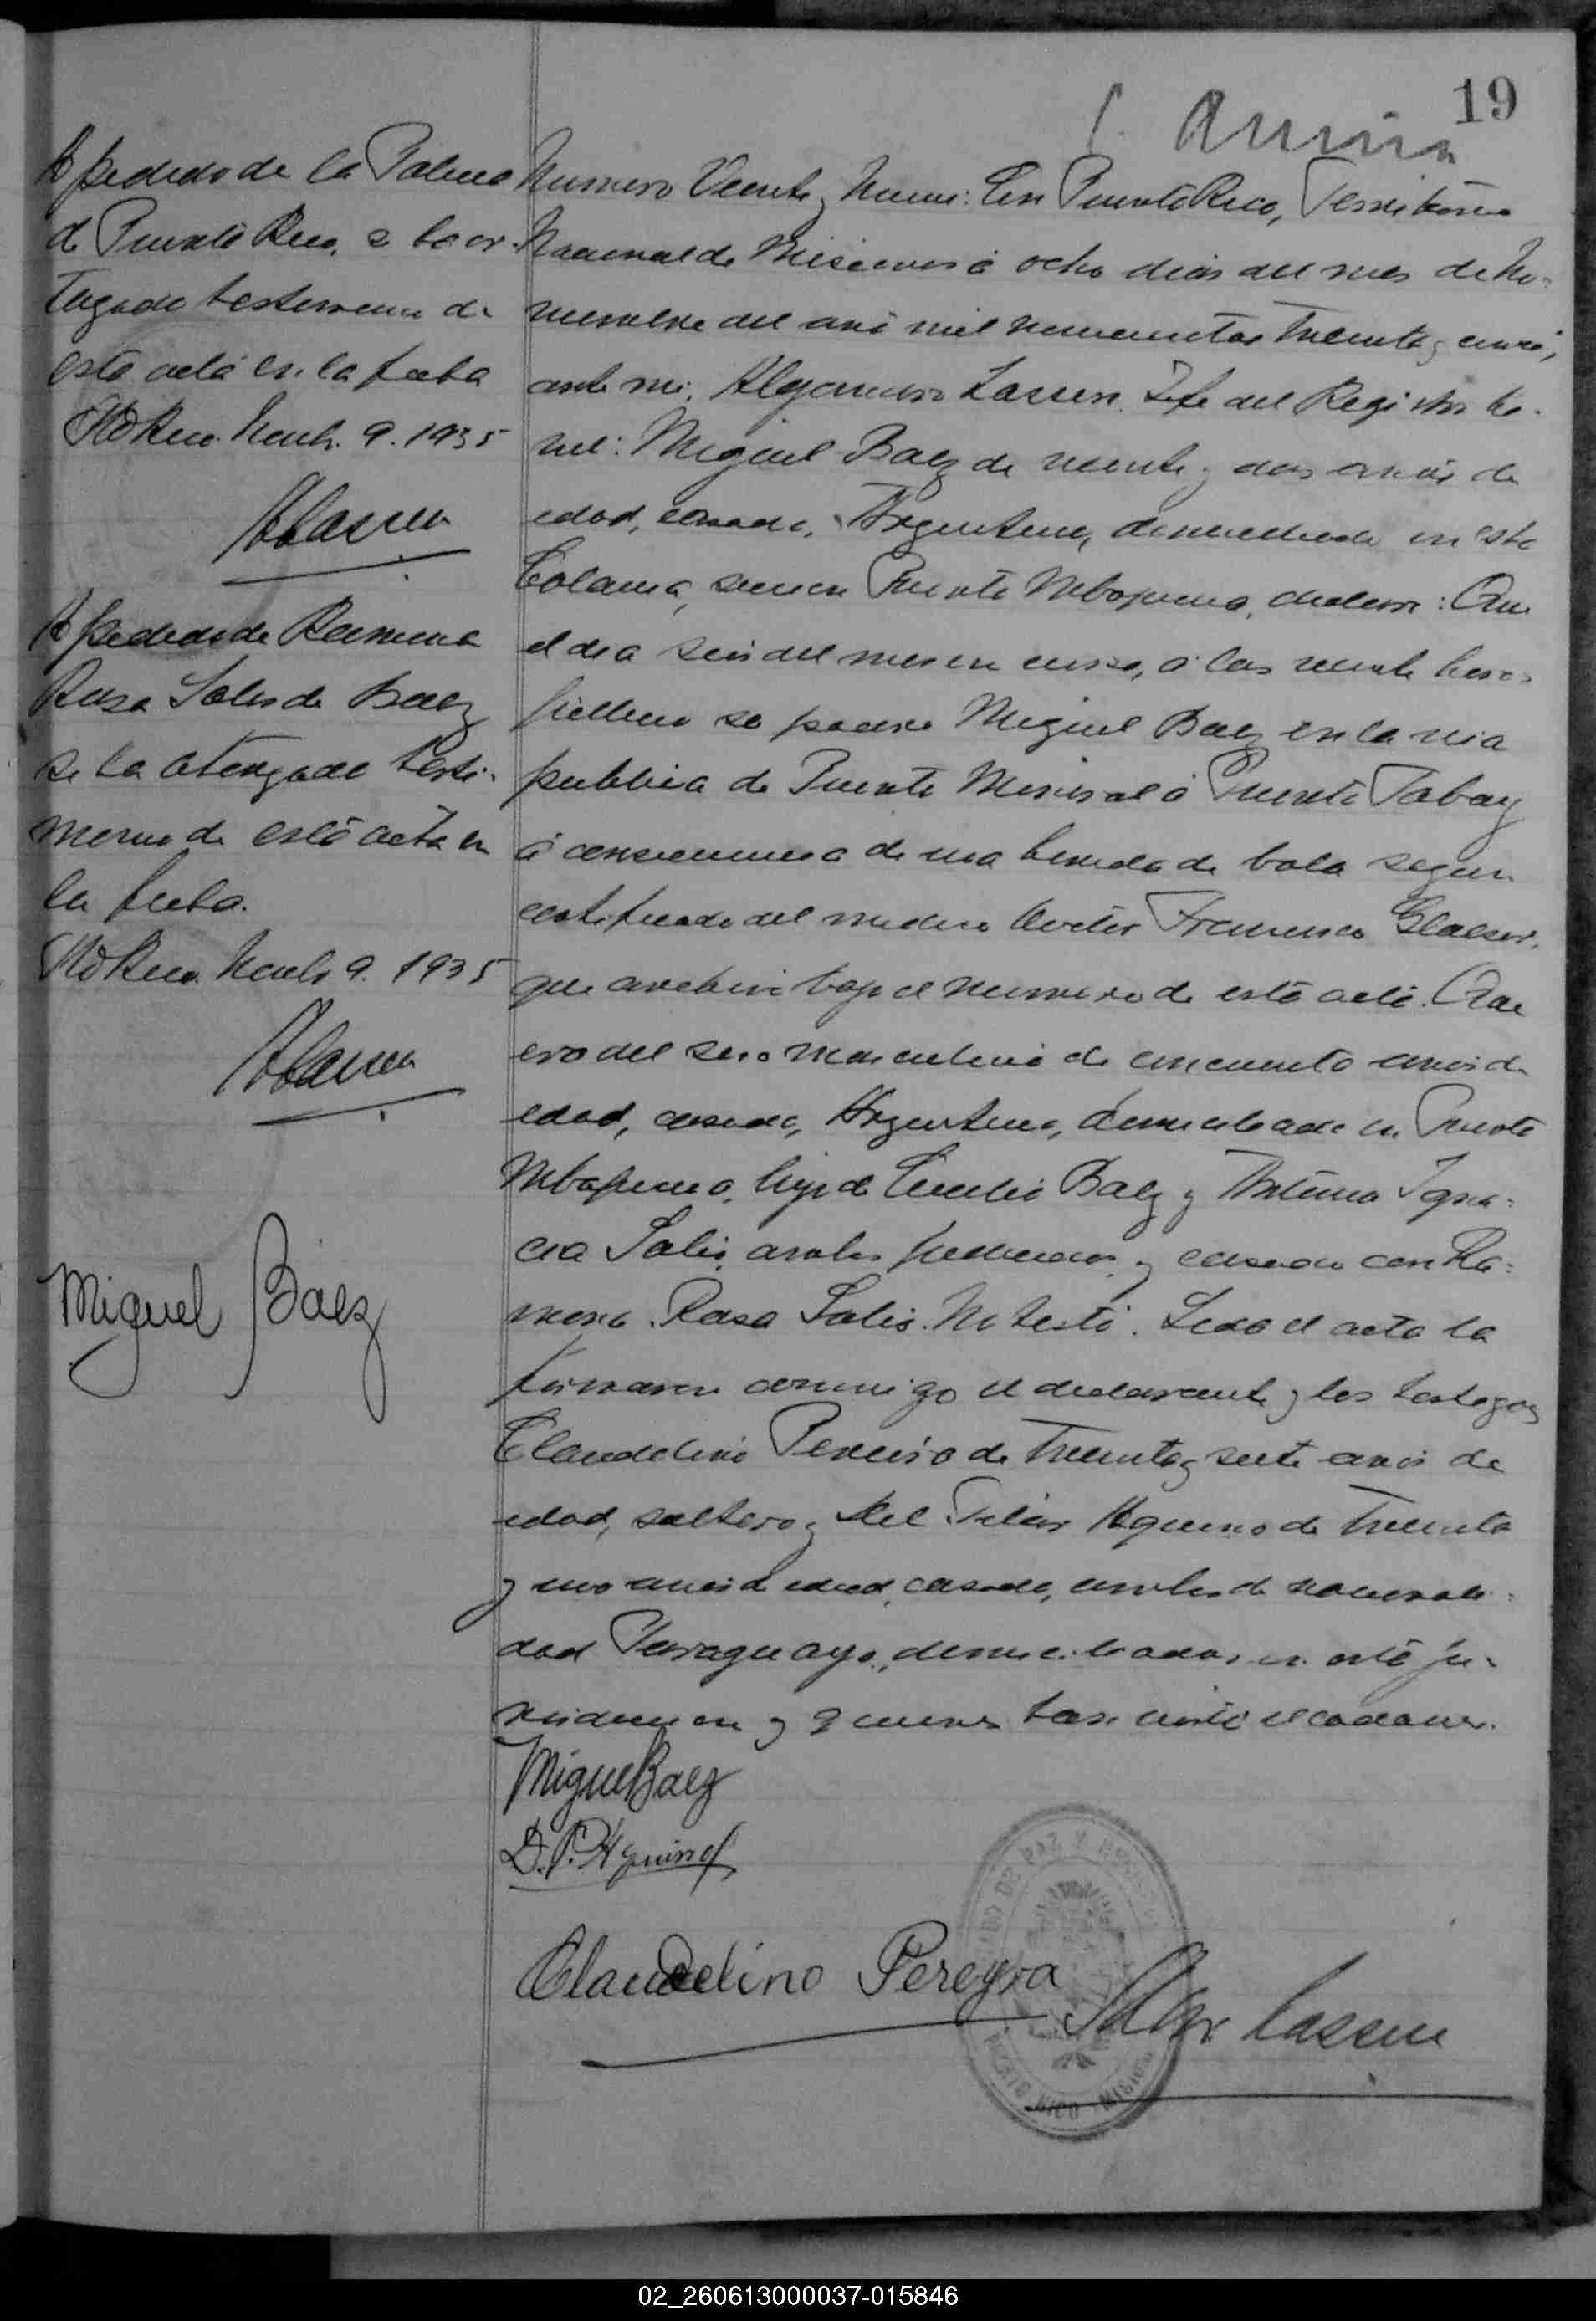 19
A pedido de la Policia
de Puerto Rico, se ha or-
togado testimonio de
esta acta en la fecha
Pto Rico. Novb. 9. 1935
ALassen
A pedido de Ramona
Rosa Solis de Baez
se ha otorgado testi-
monio de esta acta en
la fecha.
Pto Rico. Novb 9. 1935
ALassen
Miguel Báez
Numero Veinte y Nueve: En Puerto Rico, Territorio
Nacional de Misiones á ocho dias del mes de No-
viembre del año mil novecientos treinta y cinco,
ante mi, Alejandro Lassen. Jefe del Registro Ci-
vil: Miguel Baez de veinte y dos años de
edad, casado, Argentino, domiciliado en esta
Colonia, seccion Puerto Mbopicua, declara: Que
el dia seis del mes en curso, á las veinte horas
fallecio su padre Miguel Baez en la via
publica de Puerto Mineral á Puerto Tabay
á consecuencia de una herida de bala segun
certificado del medico Doctor Francisco Glaeser,
que archivo bajo el numero de esta acta. Que
era del sexo masculino de cincuenta años de
edad, casado, Argentino, domiciliado en Puerto
Mbopicua, hijo de Emilio Baez y Antonia Igna-
cia Solis, ambos fallecidos, y casado con Ra-
mona Rosa Solis. No testó. Leida el acta la
firmaron conmigo el declarante y los testigos
Claudelino Pereira de treinta y siete años de
edad, soltero y Del Pilar Aquino de treinta
y uno años de edad, casado, ambos de nacionali-
dad Paraguaya, domiciliados en esta ju-
risdiccion y quienes han visto el cadaver.
Miguel Baez
D. P. Aquino
Claudelino Pereyra
Alej Lassen
JUZGADO DE PAZ Y
PUERTO RICO MISIONES
02_260613000037-015846